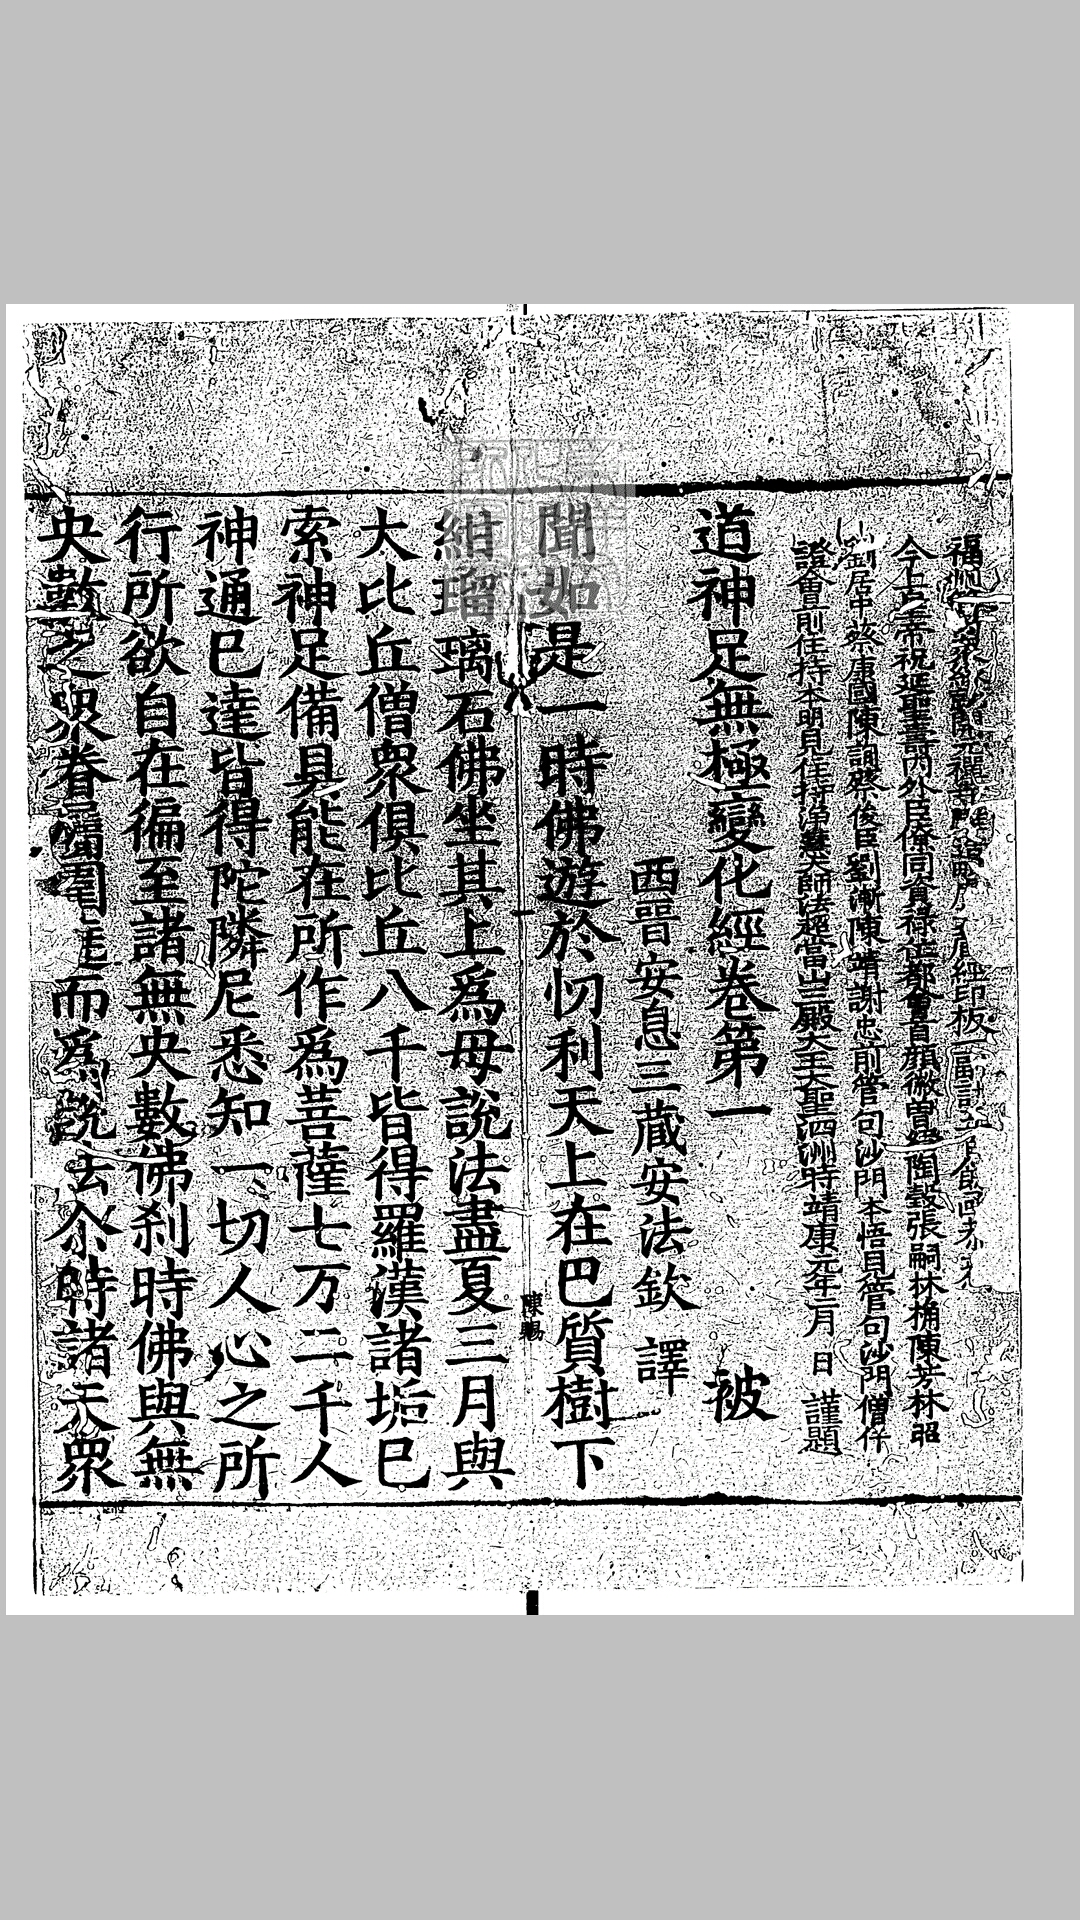 福州
今上皇帝祝延聖壽內外臣僚同資祿位都會首顏徽曾　陶穀張嗣林桷陳芳林昭
劉居中蔡康國陳詢蔡俊臣劉漸陳靖謝忠前管句沙門本悟見管句沙門僧仟
證會前住持本明見住持淨慧大師法超當山三殿大王大聖泗洲時靖康元年二月　日　謹題
道神足無極變化經卷第一　　被
西晉安息三藏安法欽　譯
聞如是一時佛遊於忉利天上在巴質樹下
陳賜
紺瑠璃石佛坐其上爲母說法盡夏三月與
大比丘僧眾俱比丘八千皆得羅漢諸垢已
索神足備具能在所作爲菩薩七万二千人
神通已達皆得陀隣尼悉知一切人心之所
行所欲自在徧至諸無央數佛刹時佛與無
央數之眾眷屬圍遶而爲說法尒時諸天眾